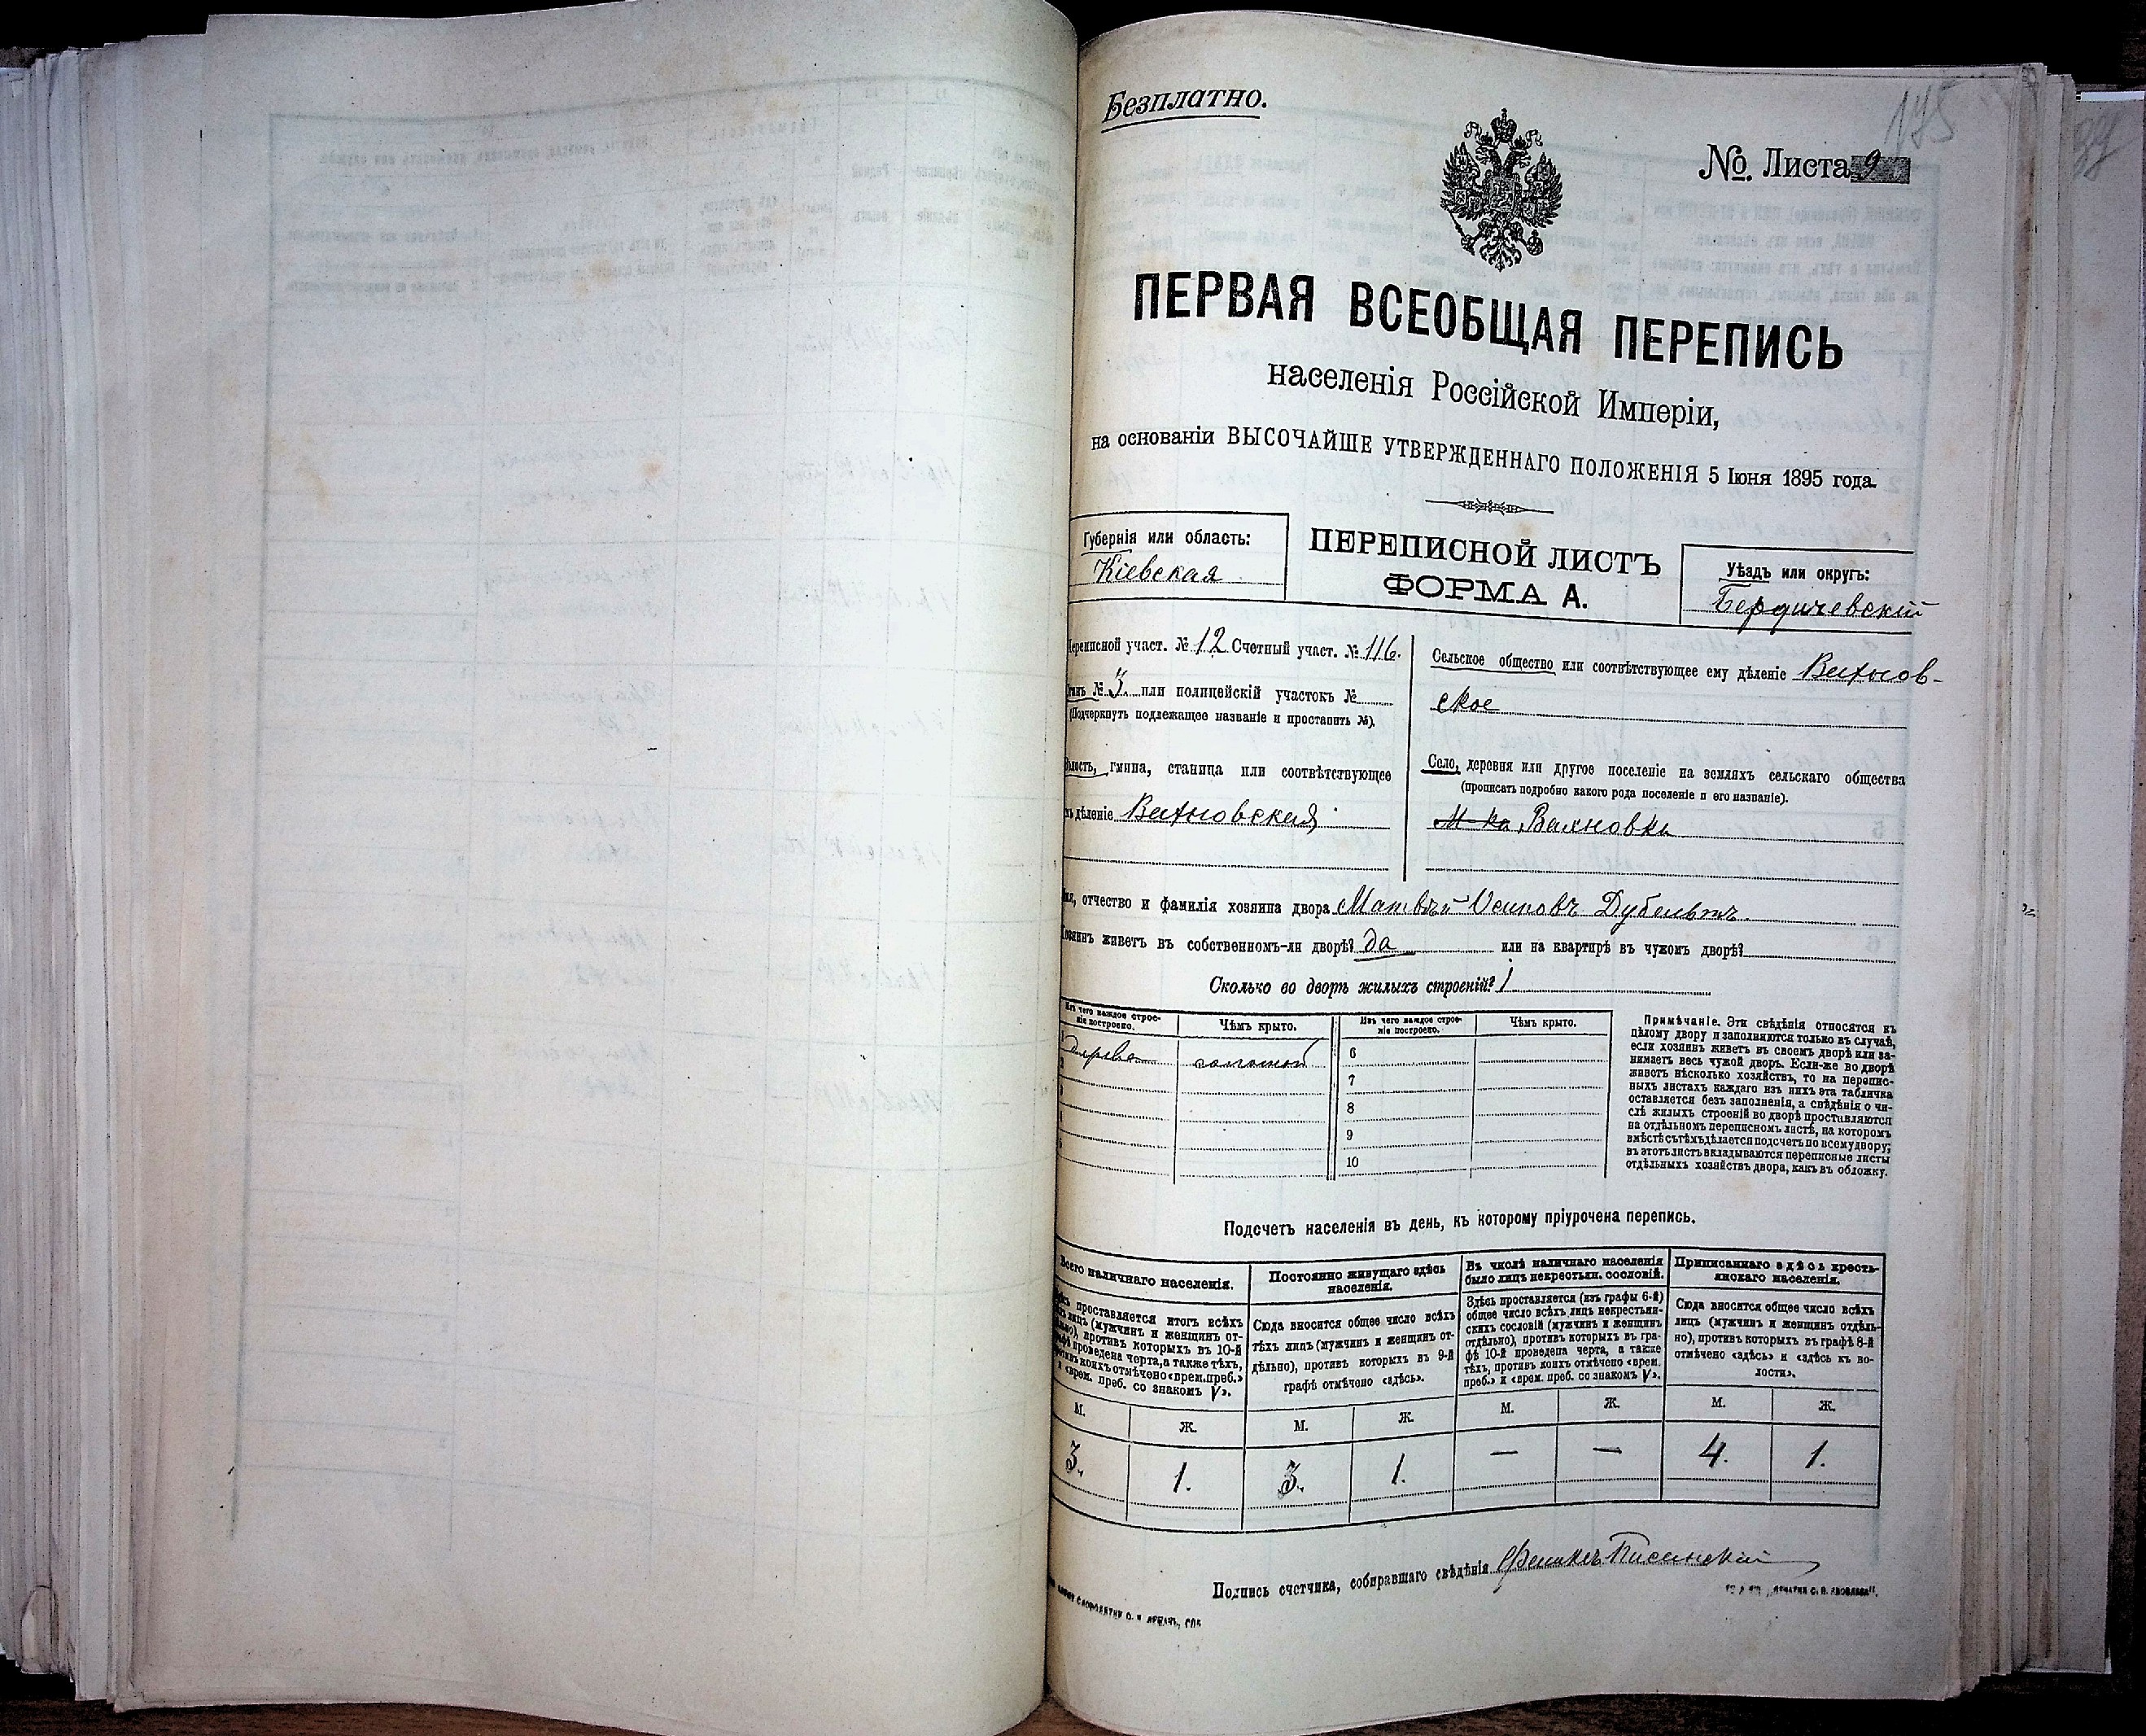 Безплатно.
175
№. Листа 9
ПЕРВАЯ ВСЕОБЩАЯ ПЕРЕПИСЬ
населенія Россійской Имперіи,
на основаніи ВЫСОЧАЙШЕ УТВЕРЖДЕННАГО ПОЛОЖЕНІЯ 5 Іюня 1895 года.
Губернія или область:
Кіевская
ПЕРЕПИСНОЙ ЛИСТЪ
ФОРМА А.
Уѣздъ или округъ:
Бердичевскій
Переписной участ. № 12 Счетный участ. № 116.
Станъ № 3 или полицейскій участокъ №
(Подчеркнуть подлежащее названіе и проставить №).
Волость, гмина, станица или соотвѣтствующее
ихъ дѣленіе Вахновская
Сельское общество или соотвѣтствующее ему дѣленіе Вахнов-
ское
Село, деревня или другое поселеніе на земляхъ сельскаго общества
(прописать подробно какого рода поселеніе и его названіе).
М-ко Вахновка
Имя, отчество и фамилія хозяина двора Матвѣй Осиповъ Дубельтъ
Хозяинъ живетъ въ собственномъ-ли дворѣ? да или на квартирѣ въ чужомъ дворѣ?
Сколько во дворѣ жилыхъ строеній? 1
Изъ чего каждое строе-
ніе построено.
Чѣмъ крыто.
Изъ чего каждое строе-
ніе построено.
Чѣмъ крыто.
дерева соломой
6
7
8
9
10
Примѣчаніе. Эти свѣдѣнія относятся къ
цѣлому двору и заполняются только въ случаѣ,
если хозяинъ живетъ въ своемъ дворѣ или за-
нимаетъ весь чужой дворъ. Если-же во дворѣ
живетъ нѣсколько хозяйствъ, то на перепис-
ныхъ листахъ каждаго изъ нихъ эта табличка
оставляется безъ заполненія, а свѣдѣнія о чи-
слѣ жилыхъ строеній во дворѣ проставляются
на отдѣльномъ переписномъ листѣ, на которомъ
вмѣстѣ съ тѣмъ дѣлается подсчетъ по всему двору;
въ этотъ листъ вкладываются переписные листы
отдѣльныхъ хозяйствъ двора, какъ въ обложку.
Подсчетъ населенія въ день, къ которому пріурочена перепись.
Всего наличнаго населенія.
Здѣсь проставляется итогъ всѣхъ
тѣхъ лицъ (мужчинъ и женщинъ от-
дѣльно), противъ которыхъ въ 10-й
графѣ проведена черта, а также тѣхъ,
противъ коихъ отмѣчено «врем. преб.»
и «врем. преб. со знакомъ V».
М. Ж.
3. 1.
Постоянно живущаго здѣсь
населенія.
Сюда вносится общее число всѣхъ
тѣхъ лицъ (мужчинъ и женщинъ от-
дѣльно), противъ которыхъ въ 9-й
графѣ отмѣчено «здѣсь».
М. Ж.
3. 1.
Въ числѣ наличнаго населенія
было лицъ некрестьян. сословій.
Здѣсь проставляется (изъ графы 6-й)
общее число всѣхъ лицъ некрестьян-
скихъ сословій (мужчинъ и женщинъ
отдѣльно), противъ которыхъ въ гра-
фѣ 10-й проведена черта, а также
тѣхъ, противъ коихъ отмѣчено «врем.
преб.» и «врем. преб. со знакомъ V».
М. Ж.
— —
Приписаннаго здѣсь кресть-
янскаго населенія.
Сюда вносится общее число всѣхъ
лицъ (мужчинъ и женщинъ отдѣль-
но), противъ которыхъ въ графѣ 8-й
отмѣчено «здѣсь» и «здѣсь къ во-
лости».
М. Ж.
4. 1.
Подпись счетчика, собиравшаго свѣдѣнія Феликсъ